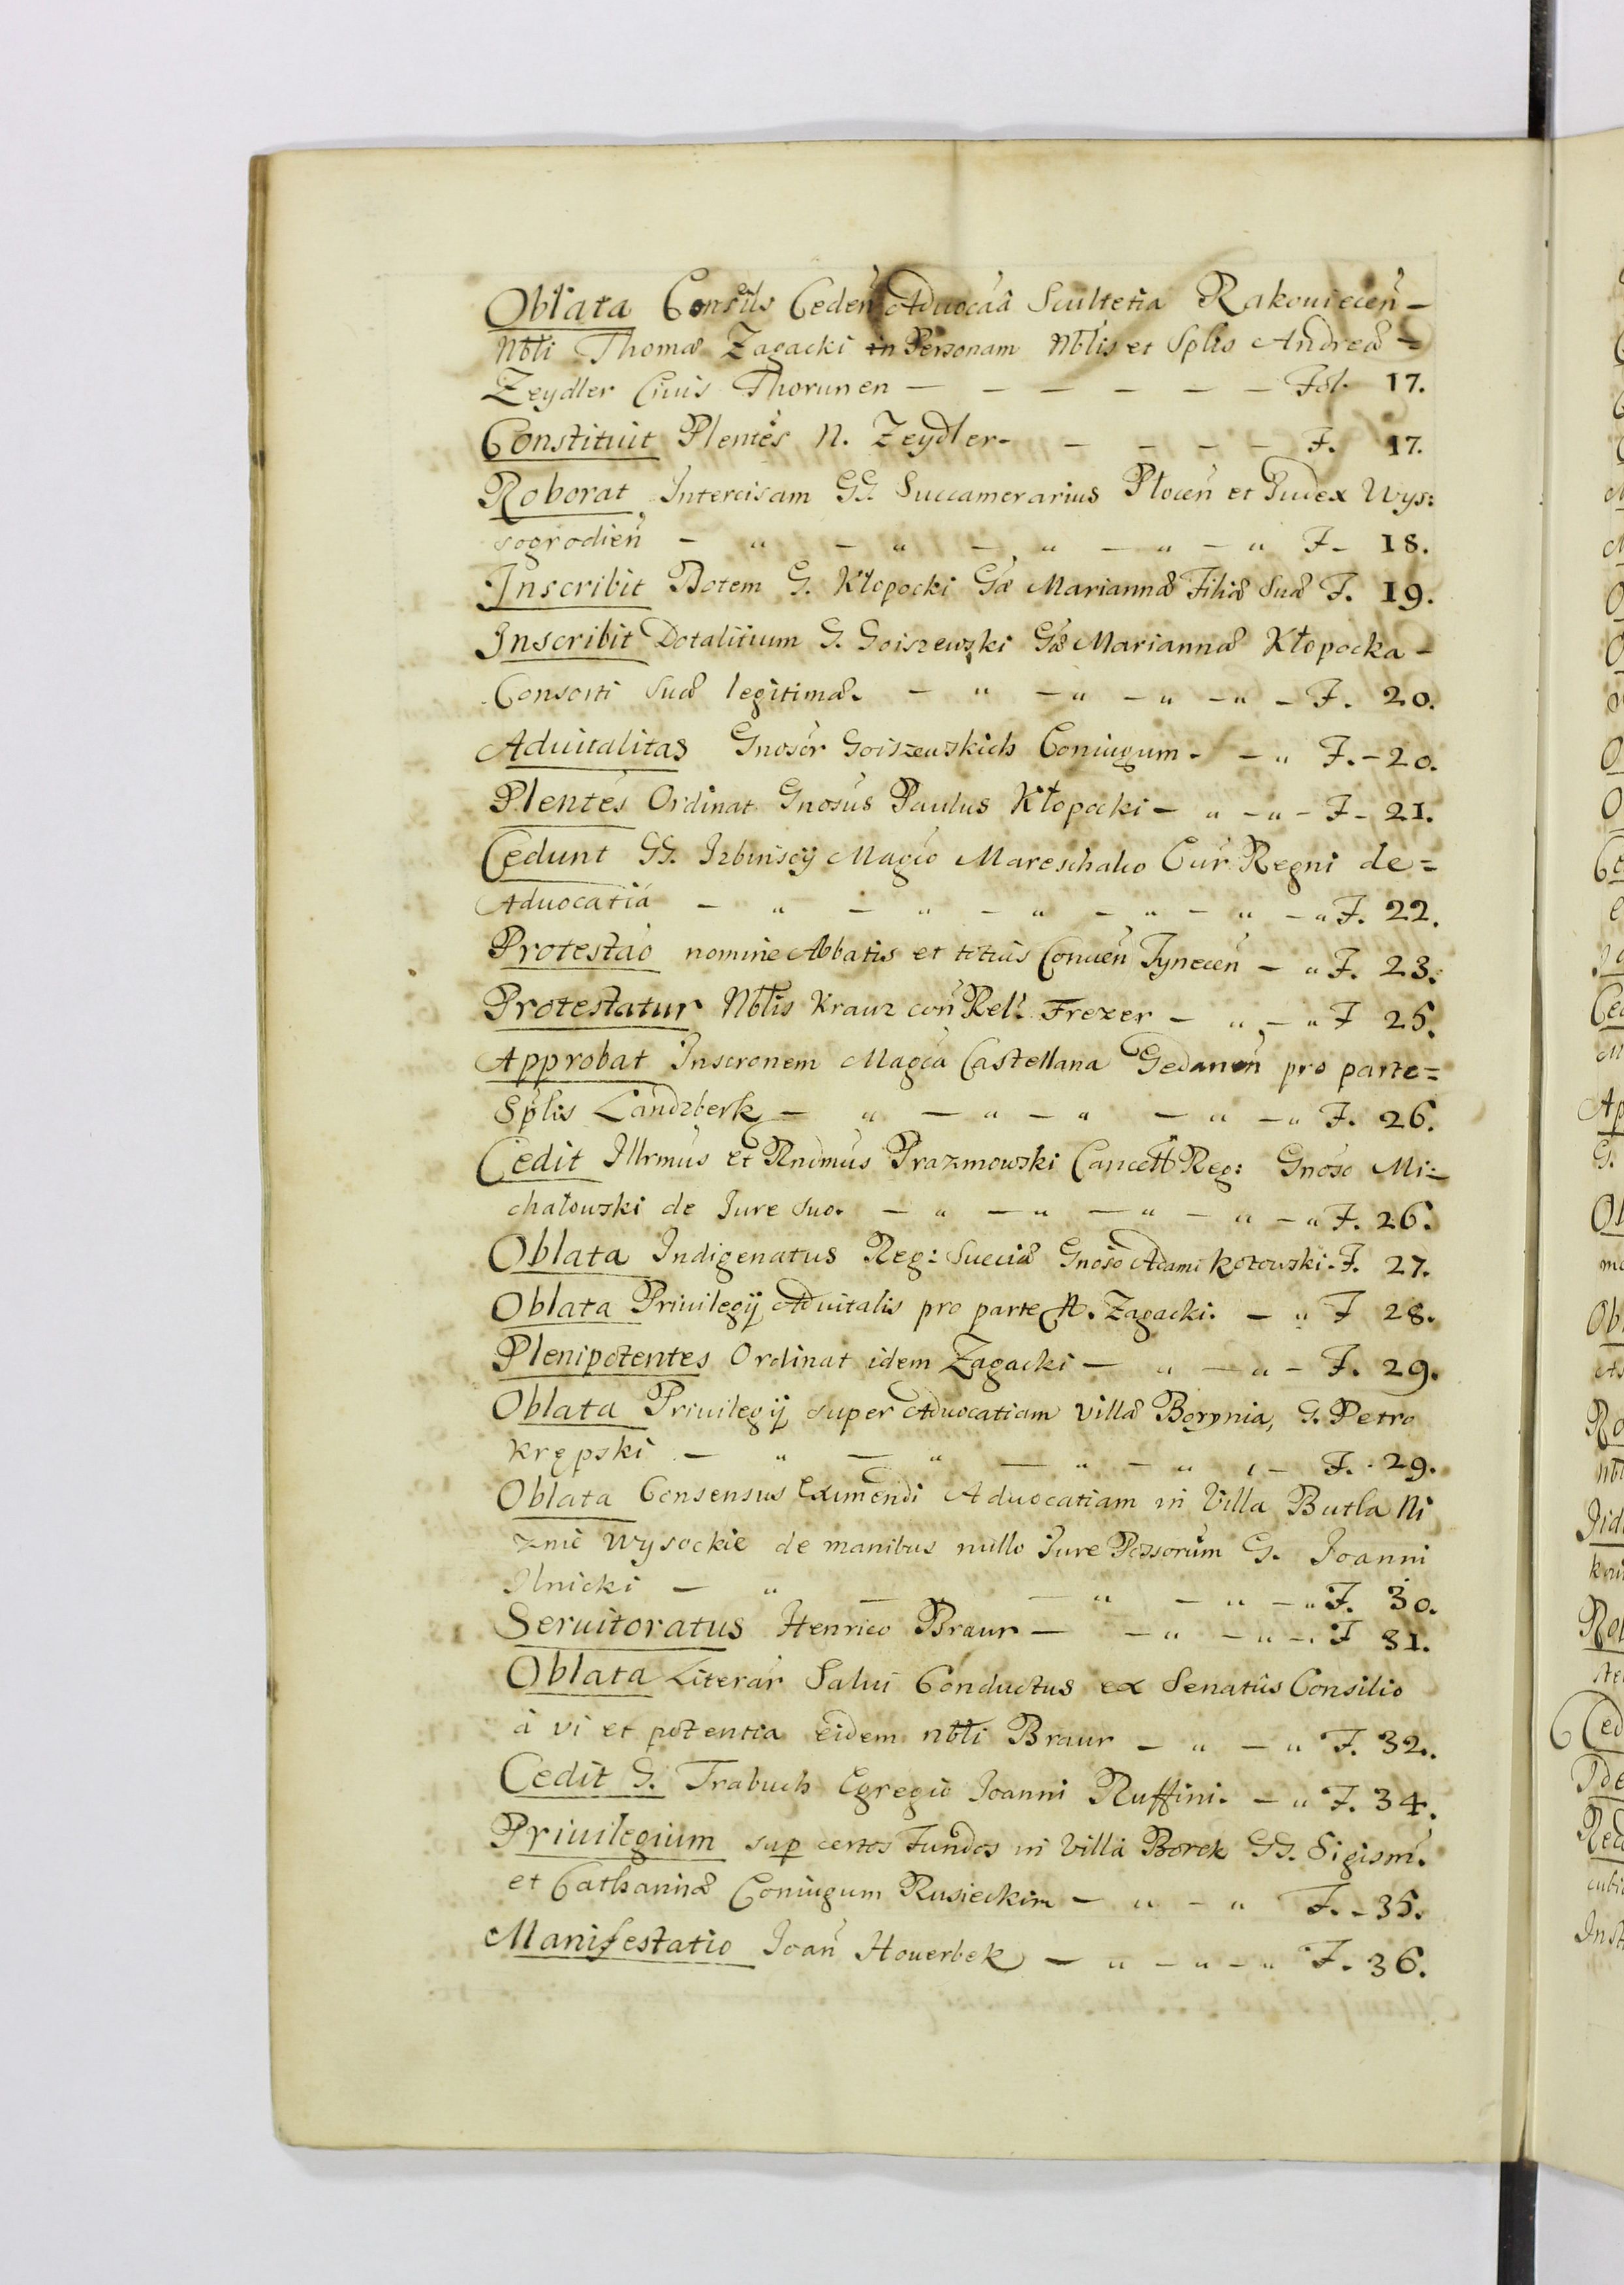 Oblata Consús Ceden̄ Aduocaã Scultetia Rakouiecen̄ –
Nbłi Thomæ Zagacki in Personam Nblis et Splis Andreæ =
Zeydler Ciuis Thorunen – – – – – – Fol. 17.
Constituit Plentes N. Zeydler. – – – – F. 17.
Roborat Intercisam GG. Succamerarius Płocen̄ et Iudex Wys:
sogrodien̄ – " – " – " – " – " F – 18.
Inscribit Dotem G. Kłopocki Gæ Mariannæ Filiæ Suæ F. 19.
Inscribit Dotalitium G. Goiszewski Gæ Mariannæ Kłopocka –
Consorti Suæ legitimæ. – " – " – " – " – F. 20.
Aduitalitas Gnosór Goiszewskich Coniugum. – " F. – 20.
Plentes Ordinat Gnosus Paulus Kłopocki – " – " – F – 21.
Cedunt GG. Izbinscij Magco Mareschalco Cur Regni de =
Aduocatiá – " – " – " – " – " – " F. 22.
Protestao nomine Abbatis et totius Conuen̄ Tynecen̄ – " F. 23.
Protestatur Nblis Krauz con̄ Rel: Frezer – " – " F 25.
Approbat Inscronem Magca Castellana Gedanen̄ pro parte =
Splis Landzberk – " – " – " – " – " F. 26.
Cedit Illrmus et Rndmus Prazmowski Cancełł Reg: Gnoso Mi =
chałouski de Iure suo. – " – " – " – " – " F. 26.
Oblata Indigenatus Reg: Sueciæ Gnoso Adami Kotowski. F. 27.
Oblata Priuilegij Aduitalis pro parte N. Zagacki. – " F 28.
Plenipotentes Ordinat idem Zagacki – " – " – F. 29.
Oblata Priuilegij super Aduocatiam villæ Borynia, G. Petro
Krępski – " – " – " – " – F. 29.
Oblata Consensus Eximendi Aduocatiam in Villa Butla Ni
znie Wysockie de manibus nullo Iure Possorum G. Joanni
Ilnicki – " – – " – " – " F. 30.
Seruitoratus Henrico Braur – – " – " – F 31.
Oblata Literar Salui Conductus ex Senatûs Consilio
à vi et potentia eidem nbłi Braur – " – " F. 32.
Cedit G. Trabuch Egregio Joanni Ruffini. – " F. 34.
Priuilegium sup certos Fundos in Villa Borek GG. Sigism.
et Catharinæ Coniugum Rusieckim – " – " F. – 35.
Manifestatio Joan̄ Houerbek – " – " – " F. 36.